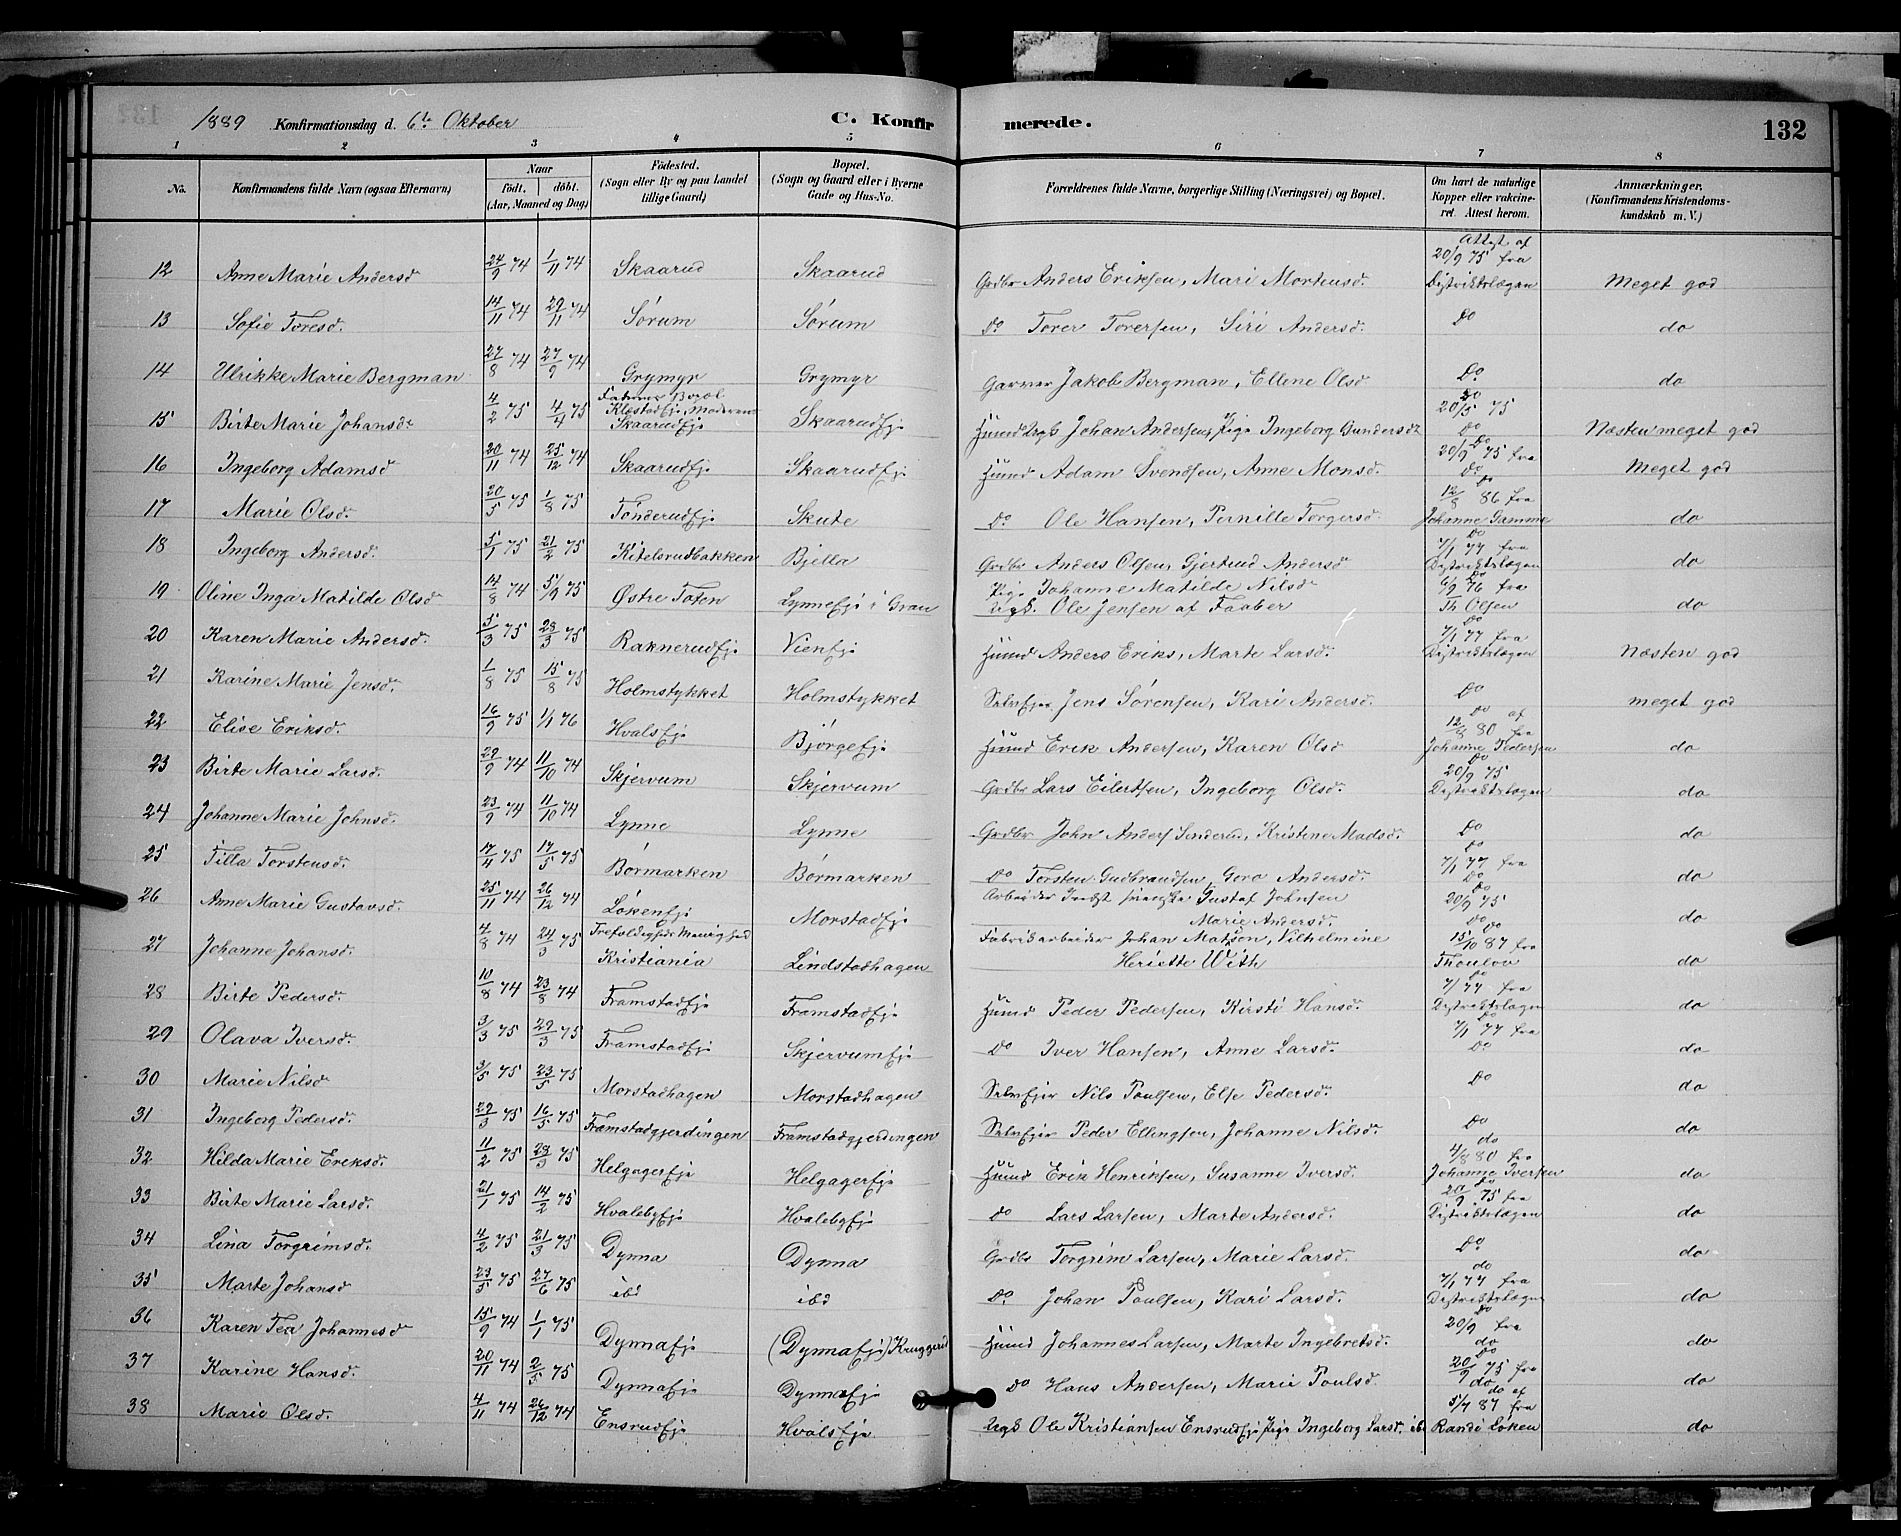 1889 Konfirmationsdag d. 6te Oktober C. Konfir merede. 132
1 2 3 4 5 6 7 8
No. Konfirmandens fulde Navn (ogsaa Efternavn) Naar født. døbt. (Aar, Maaned og Dag) Fødested. (Sogn eller By og paa Landet tillige Gaard) Bopæl. (Sogn og Gaard eller i Byerne Gade og Hus-No. Forældrenes fulde Navne, borgerlige Stilling (Næringsvei) og Bopæl. Om havt de naturlige Kopper eller vakcineret. Attest herom. Anmærkninger. (Konfirmandens Kristendomskundskab m. V.)
12 Anne Marie Andersd 24/9 74 1/11 74 Skaarud Skaarud Grdbr Anders Eriksen, Mari Mortensd. Attest af 20/9 75 fra Distriktslægen Meget god
13 Sofie Toresd. 14/11 74 29/11 74 Sørum Sørum Do Torer Torersen, Siri Andersd. Do do
14 Ulrikke Marie Bergman 27/8 74 27/9 74 Grymyr Grymyr Garver Jakob Bergman, Ellene Olsd Do do
15 Birte Marie Johansd. 4/2 75 4/4 75 Faderens Bopæl Klæstadeje, Moderens Skaarudeje Skaarudeje Husmd Ugb Johan Andersen, Pige Ingeborg Gundersd. Do 20/5 75 Do Næsten meget god
16 Ingeborg Adamsd 20/11 74 25/12 74 Skaarudeje Skaarudeje Husmd Adam Svendsen, Anne Monsd. Do 20/9 75 fra Do Meget god
17 Marie Olsd. 20/5 75 1/8 75 Tønderudeje Skute Do Ole Hansen, Pernille Torgersd. Do 12/8 86 fra Johanne Gamme do
18 Ingeborg Andersd. 5/1 75 21/2 75 Kitelsrudbakken Bjella Grdbr Anders Olsen, Gjertrud Andersd Do 7/1 77 fra Distriktslægen do
19 Oline Inga Matilde Olsd 14/8 74 5/9 75 Østre Toten Lynneeje i Gran Pige Johanne Matilde Nilsd Ugb. Ole Jensen af Faaber Do 6/9 76 fra Th Olsen do
20 Karen Marie Andersd. 5/3 75 28/3 75 Raknerudeje Vieneje Husmd Anders Eriks, Marte Larsd. Do 7/1 77 fra Distriktslægen Næsten god
21 Karine Marie Jensd. 1/8 75 15/8 75 Holmstykket Holmstykket Selveier Jens Sørensen, Kari Andersd. Do meget god
22 Elise Eriksd. 16/9 75 1/1 76 Hvalseje Bjørgeeje Husmd Erik Andersen, Karen Olsd Do af 12/8 80 fra Johanne Pedersen do
23 Birte Marie Larsd. 29/9 74 11/10 74 Skjervum Skjervum Grdbr Lars Eilertsen, Ingeborg Olsd. Do 20/9 75 Distriktslægen do
24 Johanne Marie Johnsd. 23/9 74 11/10 74 Lynne Lynne Grdbr John Anders Sønderud, Kristine Madsd. Do do
25 Tilla Torstensd. 17/4 75 17/5 75 Børmarken Børmarken Do Torsten Gudbrandsen, Goro Andersd. Do 7/1 77 fra Do do
26 Anne Marie Gustavsd. 25/11 74 26/12 74 Løkeneje Morstadeje Arbeider Gustaf Johnsen Marie Andersd. Do 20/9 75 Do do
27 Johanne Johansd. 4/8 74 24/3 75 Trefoldigheds Menighed Kristiania Lindstadhagen Fabrikarbeider Johan Matson, Vilhelmine Heriette With Do 15/10 87 fra Thoulow do
28 Birte Pedersd. 10/8 74 23/8 74 Framstadeje Framstadeje Husmd Peder Pedersen, Kirsti Hansd. Do 7/1 77 fra Distriktslægen do
29 Olava Iversd. 3/3 75 29/3 75 Framstadeje Skjervumeje Do Iver Hansen, Anne Larsd. Do 7/1 77 fra Do do
30 Marie Nilsd 3/5 75 23/5 75 Morstadhagen Morstadhagen Selveier Nils Poulsen, Else Pedersd. Do do
31 Ingeborg Pedersd. 22/3 75 16/5 75 Framstadgjerdingen Framstadgjerdingen Selveier Peder Ellingsen, Johanne Nilsd. Do do
32 Hilda Marie Eriksd. 11/2 75 29/3 75 Helgagereje Helgagereje Husmd Erik Henriksen, Susanne Iversd. do 4/8 80 fra Johanne Iversen do
33 Birte Marie Larsd. 21/1 75 14/2 75 Hvalebyeje Hvalebyeje do Lars Larsen, Marte Andersd. Do 20/9 75 fra Distriktslægen do
34 Lina Torgrimsd. 4/2 75 21/3 75 Dynna Dynna Grdbr Torgrim Larsen, Marie Larsd. Do do
35 Marte Johansd 23/5 75 27/6 75 ibd ibd Do. Johan Poulsen, Kari Larsd. do 7/1 77 fra Distriktslægen do
36 Karen Tea Johannesd 15/9 74 1/1 75 Dynnaeje (Dynnaeje) Kruggerud Husmd Johannes Larsen, Marte Ingebretsd. Do 20/9 fra do do
37 Karine Hansd. 20/11 74 2/5 75 Dynnaeje Dynnaeje do Hans Andersen, Marie Poulsd. Do 20/9 75 fra do do
38 Marie Olsd. 4/11 74 26/12 74 Ensrudeje Hvalseje Ugb Ole Kristiansen Ensrudeje, Pige Ingeborg Larsd. ibd do af 5/7 87 fra Randi Løken do